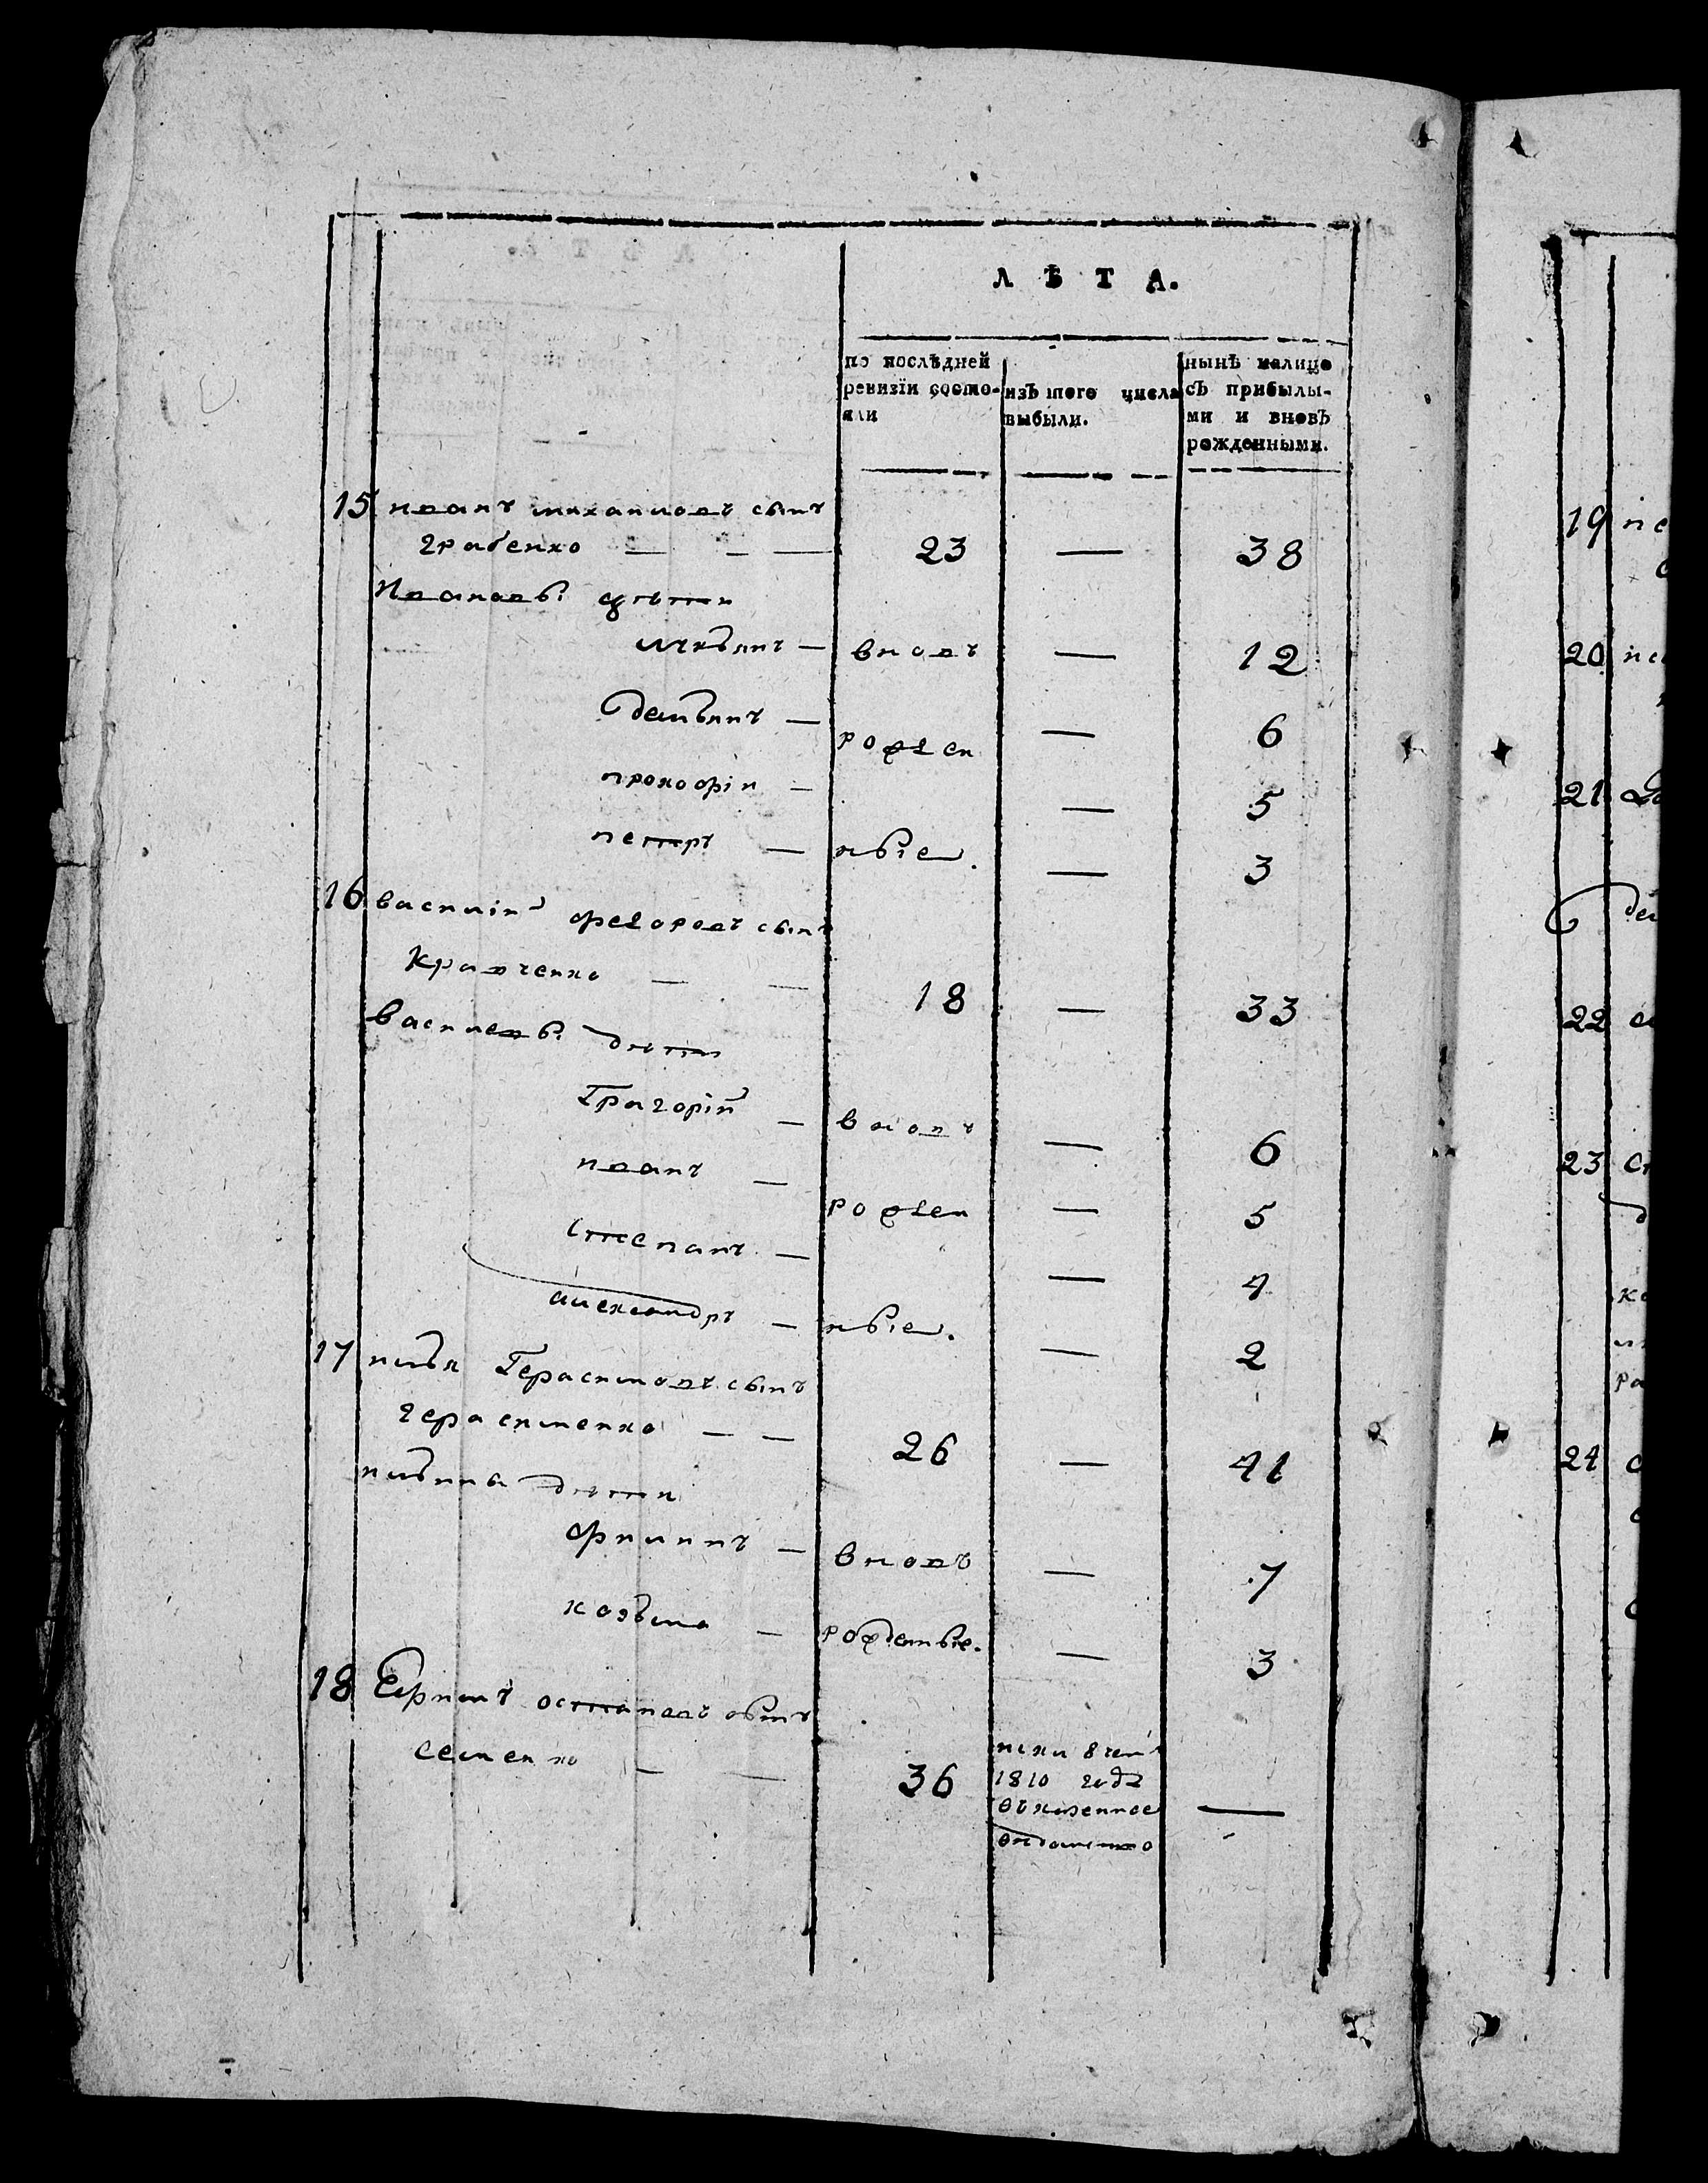 ЛѢТА.
по послѣдней ревизіи состояли
изъ того числа выбыли.
нынѣ налицо съ прибылыми и вновь рожденными.
15 иванъ михаиловъ сынъ
грабенко — — — 23 — 38
Ивановы дѣти
лукьянъ — вновъ — 12
демьянъ — — 6
рожден
прокофіи — — 5
петръ — ныіе. — 3
16 василій федоровъ сынъ
Кравченко — — 18 — 33
василевы дѣти
Григорій — вновъ — 6
иванъ — рожден — 5
степанъ — — 4
александръ — ныіе. — 2
17 илья Герасимовъ сынъ
герасименко — — 26 — 41
ильины дѣти
филипъ — вновъ — 7
козьма — рожденыіе. — 3
18 Ефимъ остаповъ сынъ
семенко — — 36
1810 года
—
19
20
21
22
23
24